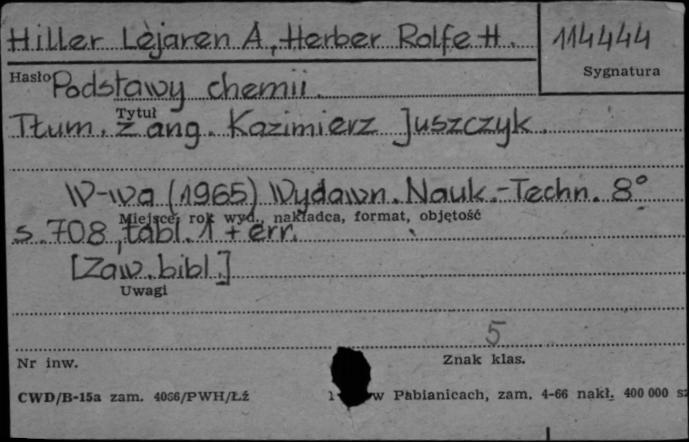 Hiller Lejaren A, Herber Rolfe H. 114444
Hasło Sygnatura
Podstawy chemii.
Tytuł
Tłum. z ang. Kazimierz Juszczyk.
W-wa (1965) Wydawn. Nauk.-Techn. 8°
Miejsce, rok wyd., nakładca, format, objętość
s. 708, tabl. 1 + err.
[Zaw. bibl.]
Uwagi
5
Nr inw. Znak klas.
CWD/B-15a zam. 4066/PWH/Łź w Pabianicach, zam. 4-66 nakł. 400 000